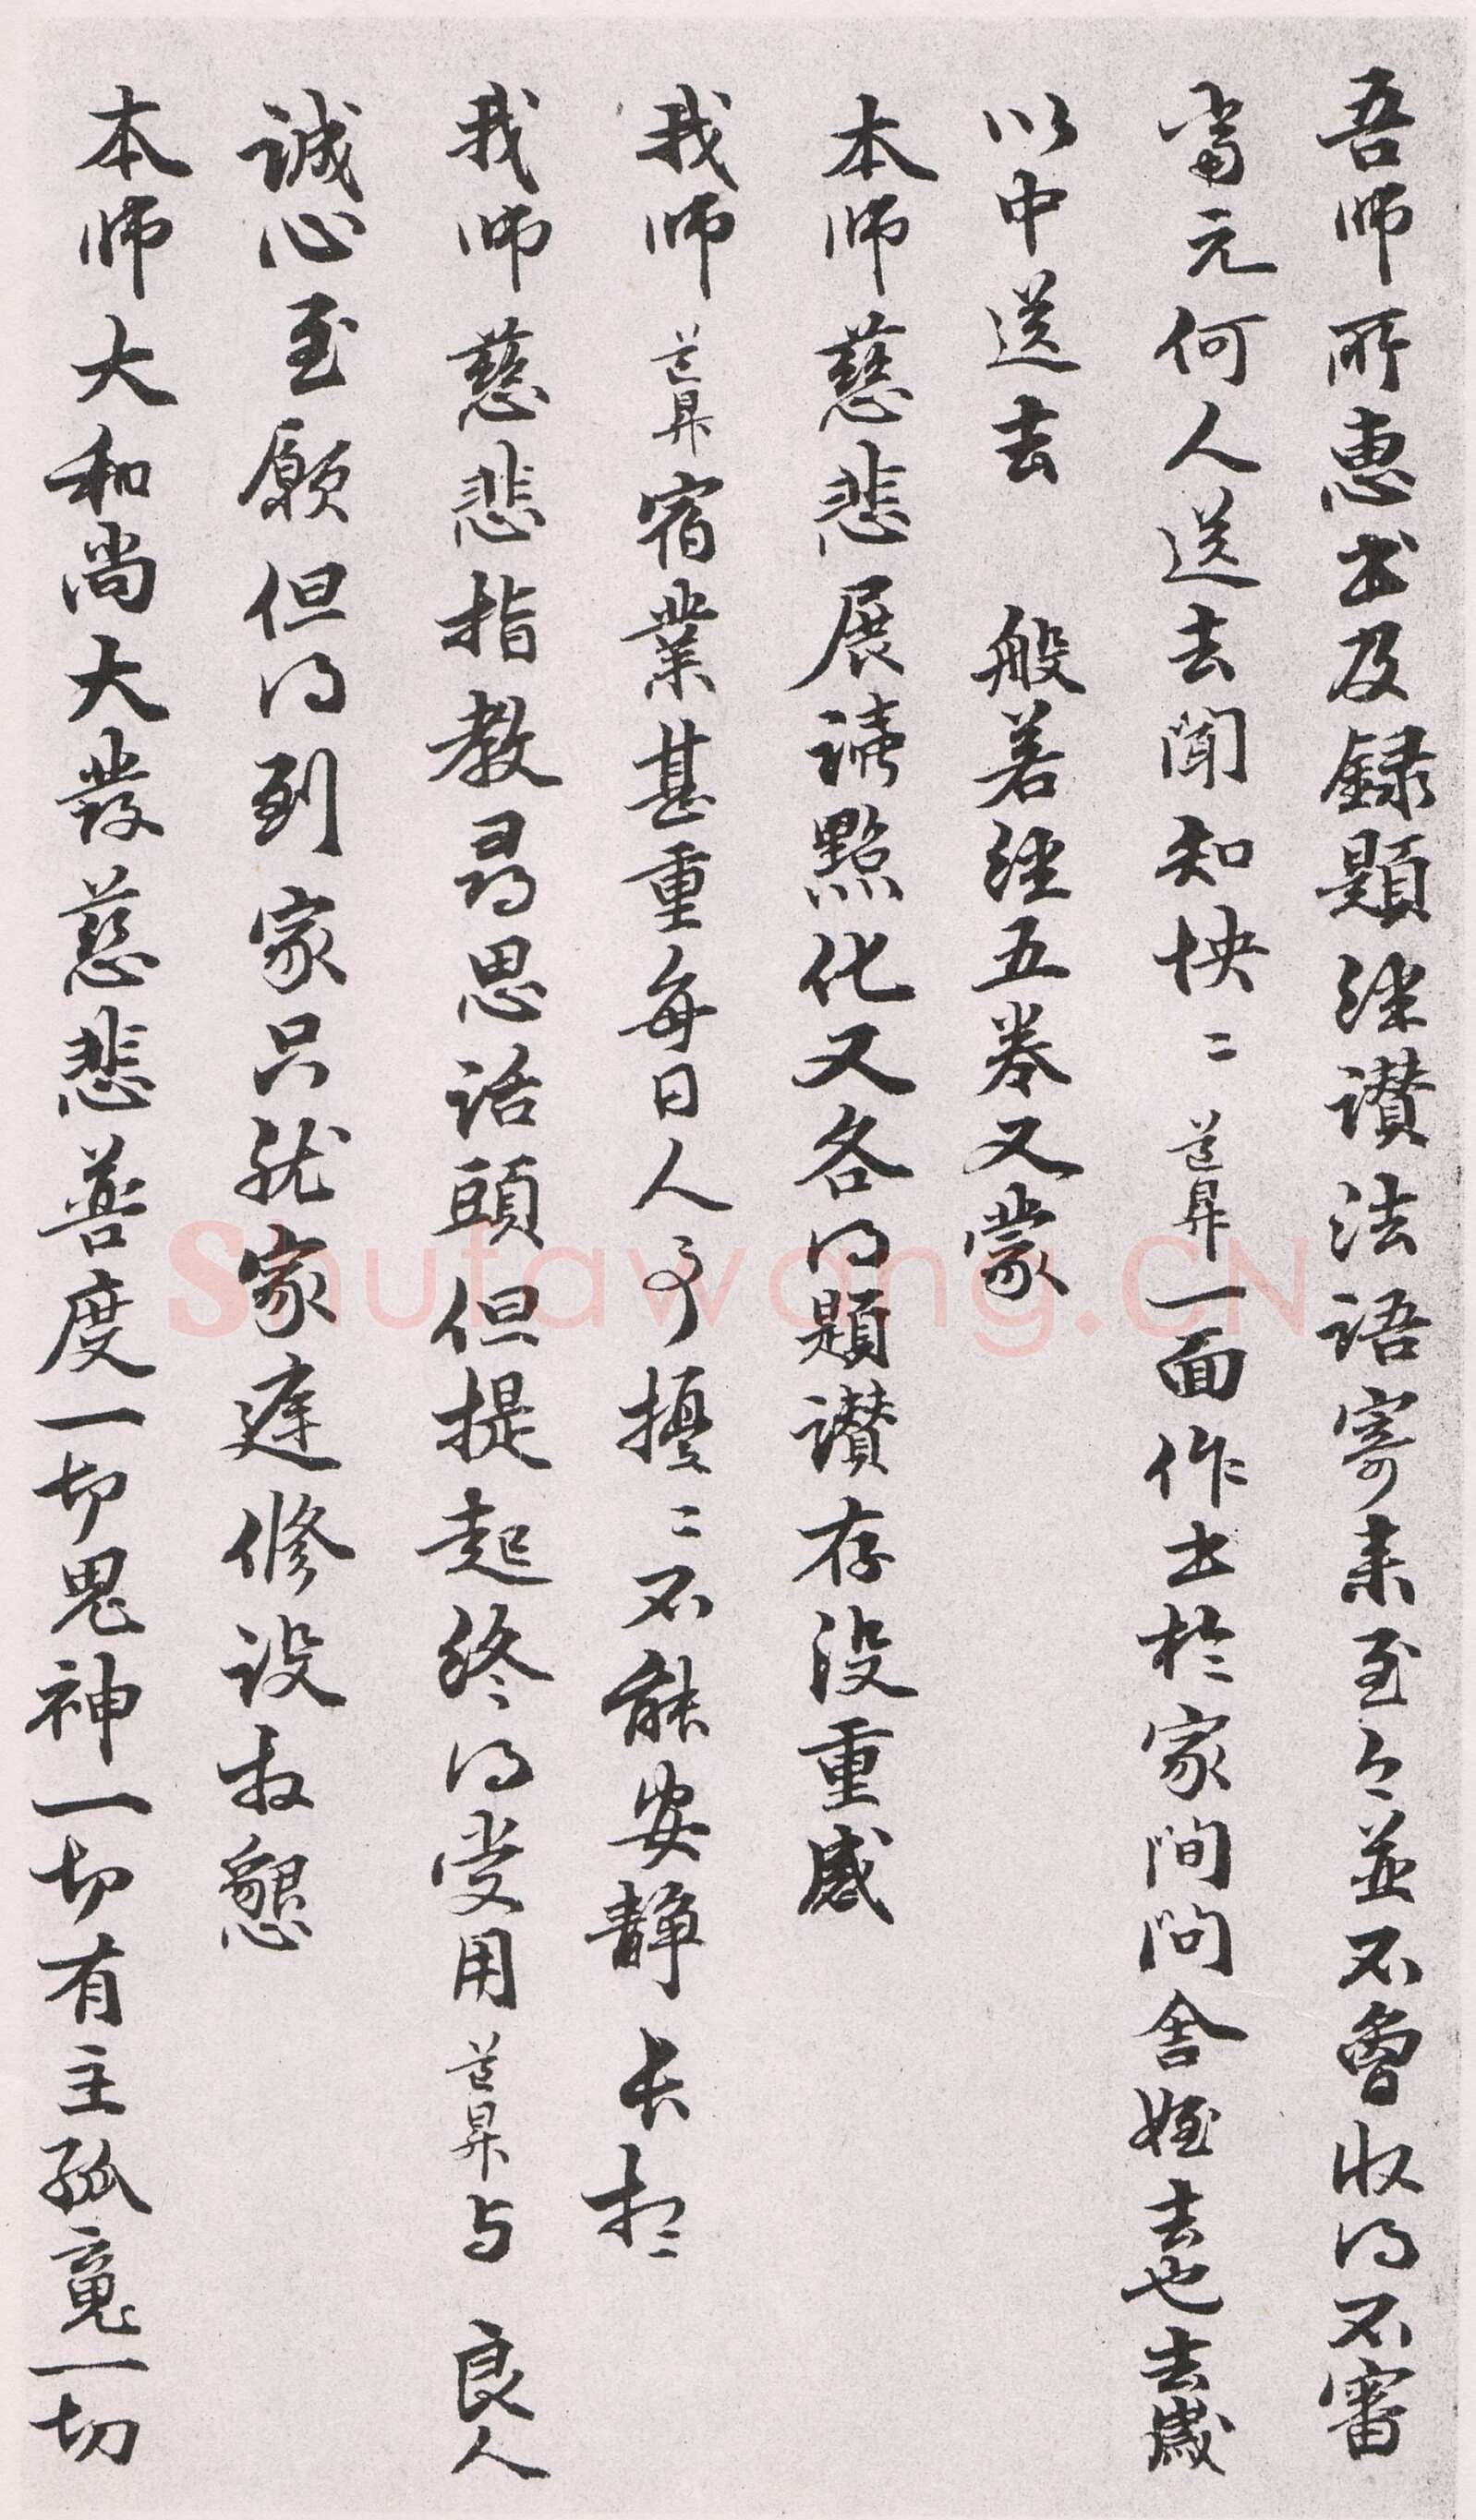 吾师所惠书及録題経讃法语寄来至今並不曾收得不審
当元何人送去闻知怏〻道昇一面作书於家间问舍姪去也去歲
以中送去 般若経五卷又蒙
本师慈悲展读點化又各得題讃存没重感
我师道昇宿業甚重每日人事擾〻不能安静 长想
我师慈悲指教寻思话頭但提起终得受用道昇与 良人
誠心至願但得到家只就家庭修设拜懇
本师大和尚大發慈悲普度一切鬼神一切有主孤魂一切
Shufawang.CN